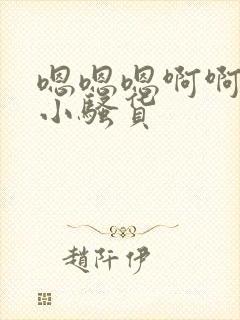 嗯嗯嗯啊啊
小骚货
趙阡伊